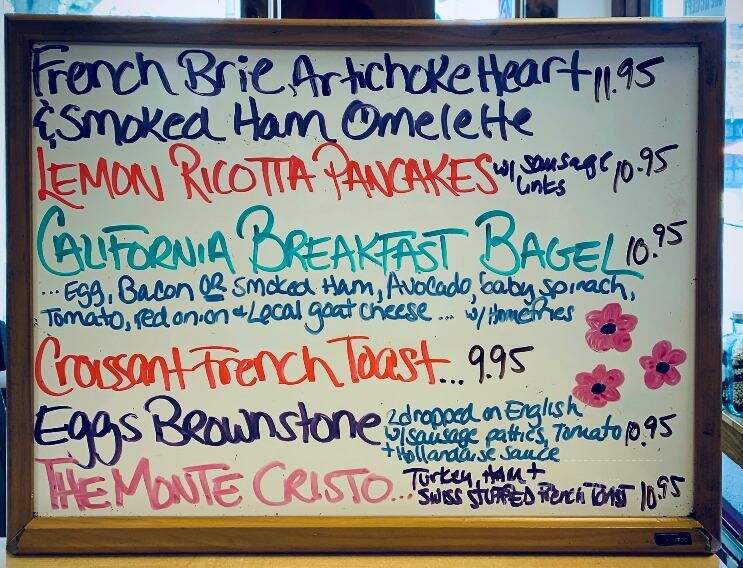 French Brie, Artichoke Heart 11.95
& Smoked Ham Omelette
LEMON RICOTTA PANCAKES w/ sausage links 10.95
CALIFORNIA BREAKFAST BAGEL 10.95
... Egg, Bacon OR Smoked Ham, Avocado, baby spinach,
Tomato, red onion + Local goat cheese ... w/ Homefries
Croissant French Toast... 9.95
Eggs Brownstone 2 dropped on English
w/ sausage patties, Tomato 10.95
+ Hollandaise sauce
THE MONTE CRISTO... Turkey, HAM +
SWISS STUFFED FRENCH TOAST 10.95